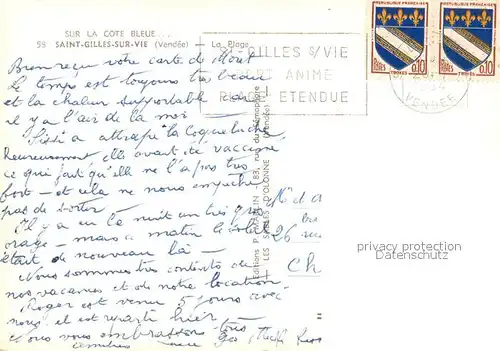 SUR LA COTE BLEUE...
58 SAINT-GILLES-SUR-VIE (Vendée) — La Plage
ST-GILLES S/VIE
PORT ANIME
PLAGE ETENDUE
REPUBLIQUE FRANCAISE
POSTES 0,10
TROYES
REPUBLIQUE FRANCAISE
POSTES 0,10
TROYES
VENDEE
Bien reçu votre carte de
Le temps est toujours très beau
et la chaleur supportable car
il y a l'air de la mer
Sissi a attrapé la coqueluche
Heureusement, elle avait été vaccinée
ce qui fait qu'elle ne l'a pas très
fort — et cela ne nous empêche
pas de sortir
Il y a eu la nuit un très gros
orage — mais ce matin le soleil
était de nouveau là —
Nous sommes très contents de
nos vacances et de notre location
Roger est venu 5 jours avec
nous, il est reparti hier
Nous vous embrassons tous
Editions P. 83, rue du
LES SABLES D'OLONNE (Vendée)
26 rue
Ch
privacy protection
Datenschutz